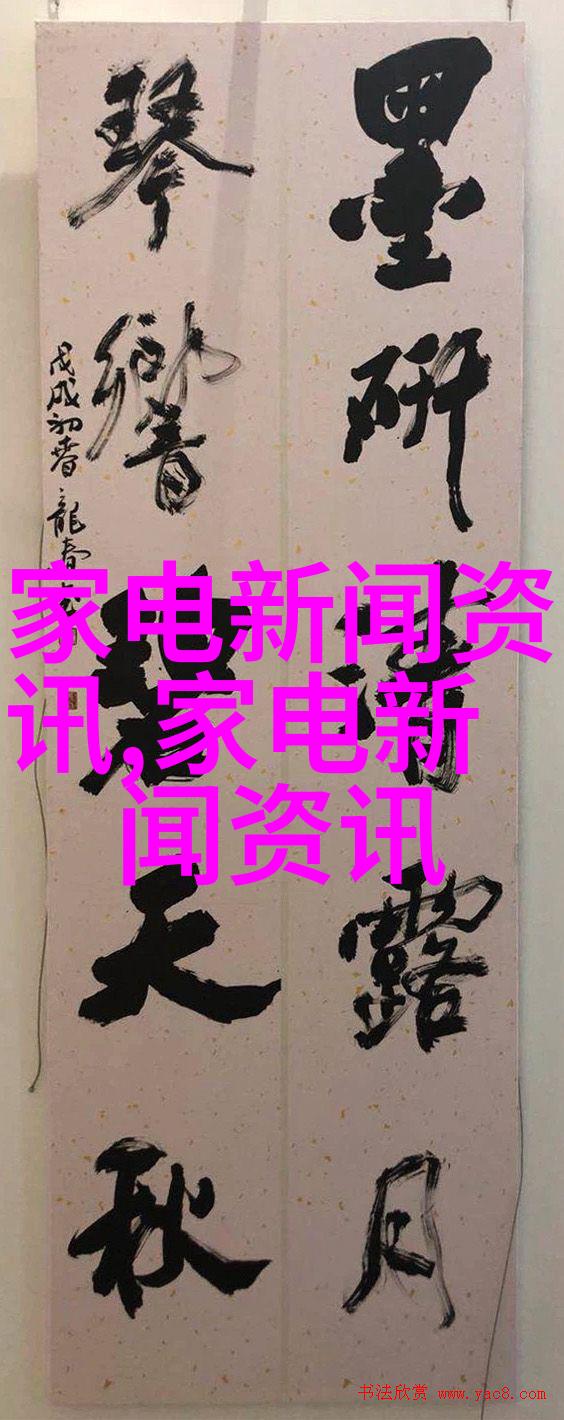 墨研清露月
琴響碧天秋
戊戌初春龍春
家电新闻资
讯,家电新
闻资讯
书法欣赏 www.yac8.com